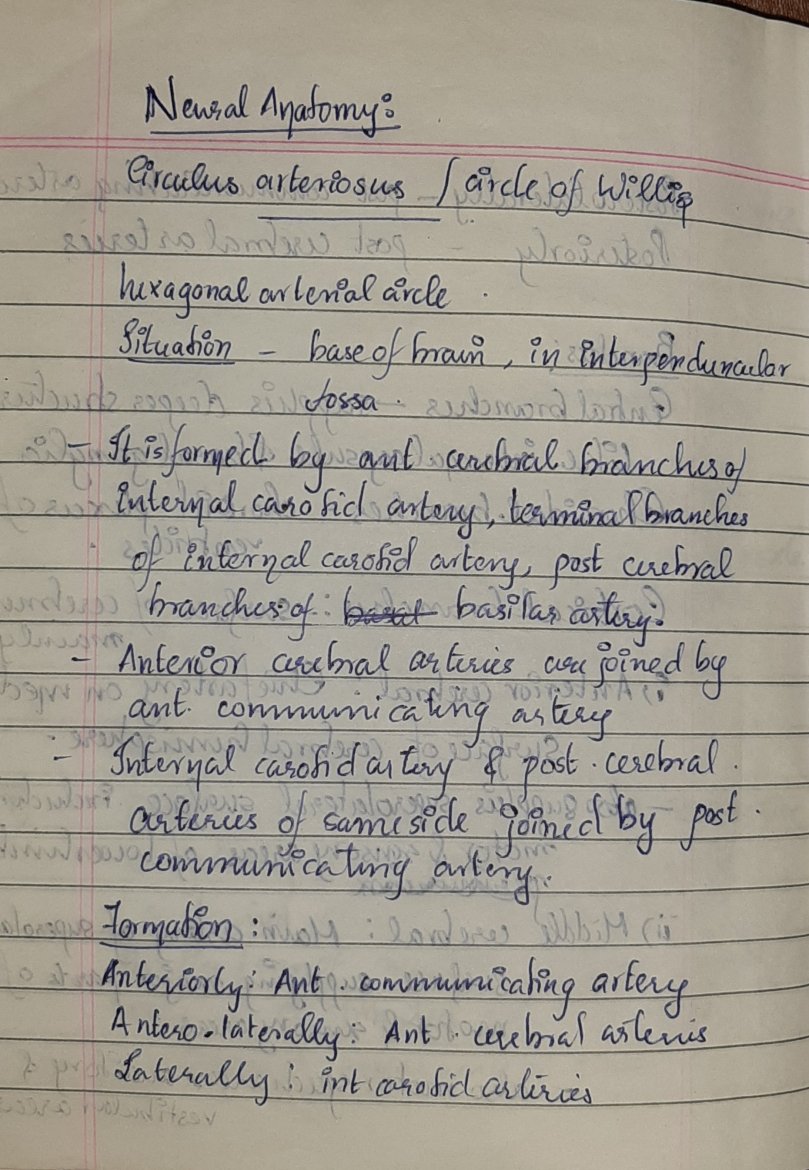 Neural Anatomy:
Circulus arteriosus / circle of Willis
hexagonal arterial circle.
Situation - base of brain, in interpenduncular
fossa.
- It is formed by ant cerebral branches of
internal carotid artery, terminal branches
of internal carotid artery, post cerebral
branches of: basal basilar artery:
- Anterior cerebral arteries are joined by
ant. communicating artery
- Internal carotid artery & post. cerebral.
arteries of same side joined by post.
communicating artery.
Formation:
Anteriorly: Ant. communicating artery
Antero-laterally: Ant. cerebral arteries
Laterally: int carotid arteries